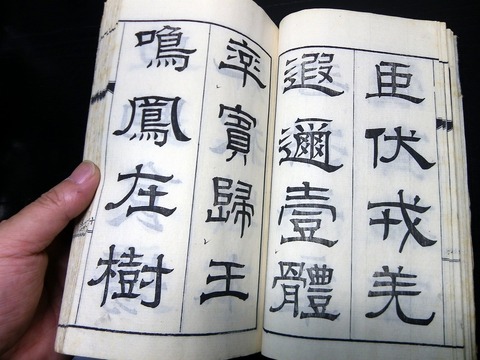 臣伏戎羌
遐邇壹體
率賓歸王
鳴鳳在樹